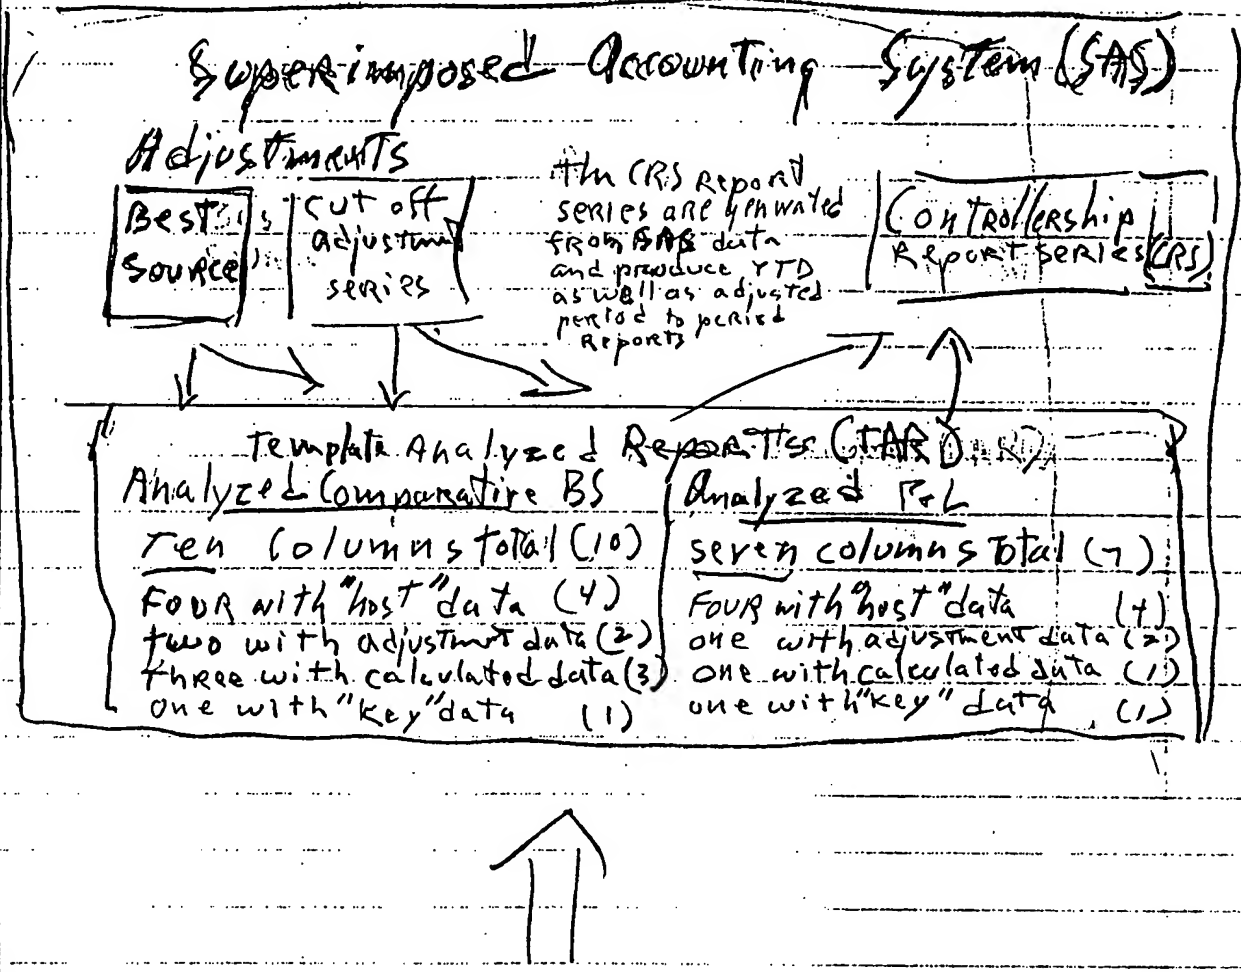 Superimposed Accounting System (SAS)
Adjustments
Best
Source
cut off
adjustment
series
the CRS Report
series are generated
from SAS data
and produce YTD
as well as adjusted
period to period
Reports
Controllership
Report series (CRS)
Template Analyzed Reports (TAR)
Analyzed Comparative BS
Ten columns total (10)
FOUR with "host" data (4)
two with adjustment data (2)
three with calculated data (3)
one with "key" data (1)
Analyzed P&L
seven columns Total (7)
FOUR with "host" data (4)
one with adjustment data (2)
one with calculated data (1)
one with "key" data (1)